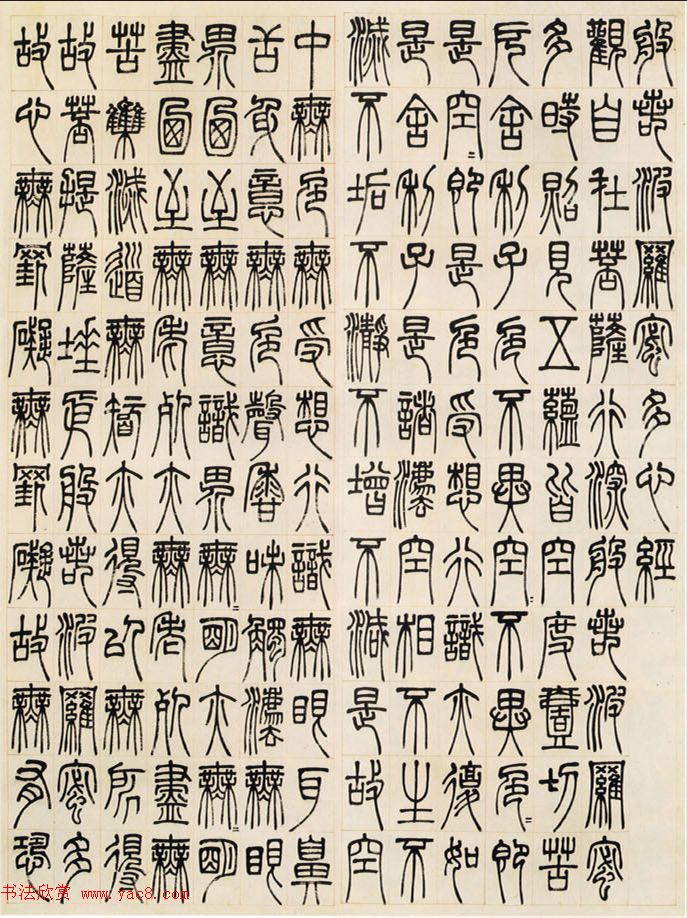 般若波羅蜜多心經
觀自在菩薩行深般若波羅蜜
多時照見五蘊皆空度壹切苦
厄舍利子色不異空〻不異色〻即
是空〻即是色受想行識亦復如
是舍利子是諸法空相不生不
滅不垢不瀞不增不減是故空
中無色無受想行識無眼耳鼻
舌身意無色聲香味觸法無眼
界迺至無意識界無〻明亦無〻明
盡迺至無老死亦無老死盡無
苦集滅道無智亦得以無所得
故菩提薩埵依般若波羅蜜多
故心無罣礙無罣礙故無有恐
书法欣赏 www.yac8.com